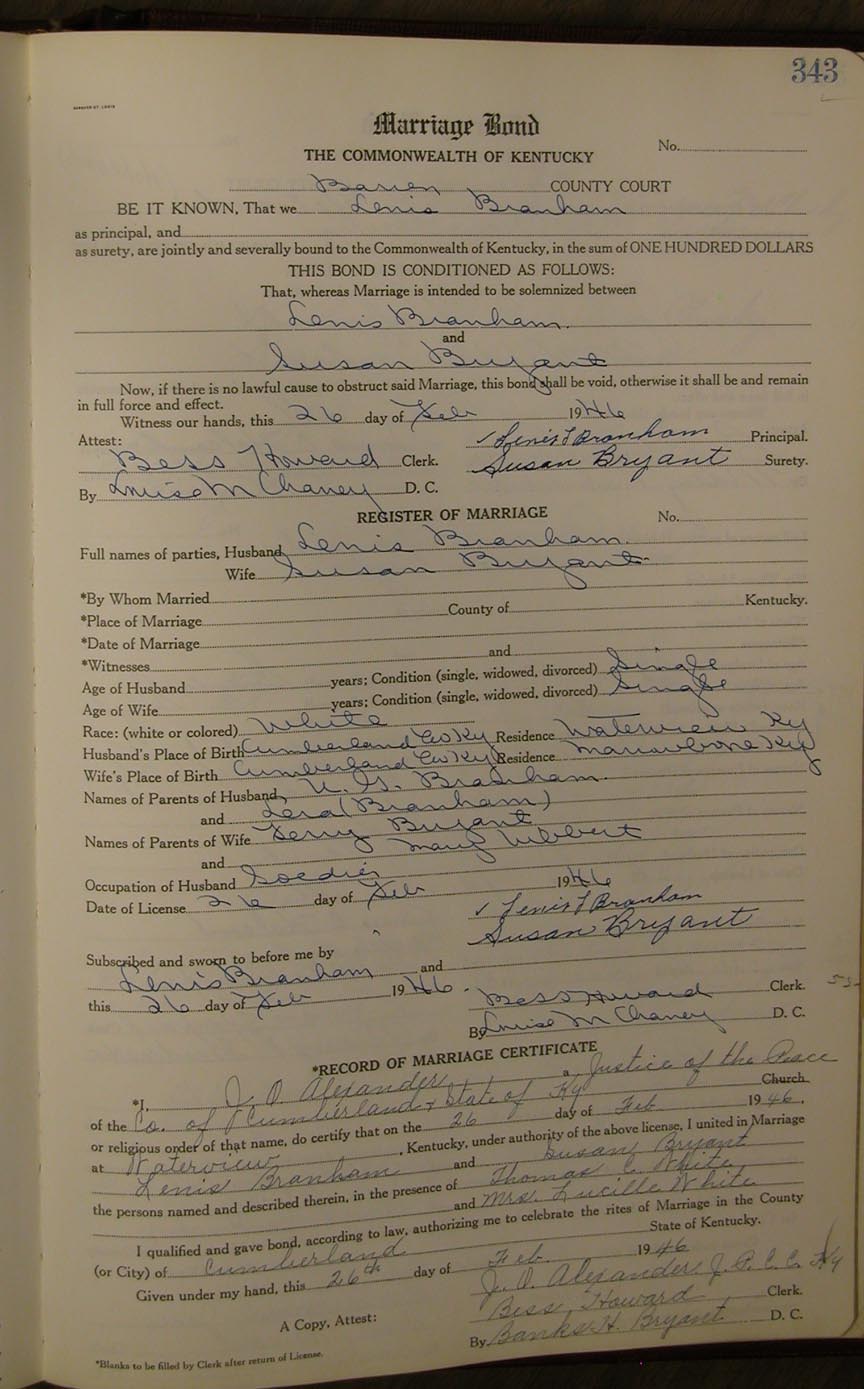 343
Marriage Bond
THE COMMONWEALTH OF KENTUCKY
No.
Barren COUNTY COURT
BE IT KNOWN, That we Lenis Branham
as principal, and
as surety, are jointly and severally bound to the Commonwealth of Kentucky, in the sum of ONE HUNDRED DOLLARS
THIS BOND IS CONDITIONED AS FOLLOWS:
That, whereas Marriage is intended to be solemnized between
Lenis Branham
and
Susan Bryant
Now, if there is no lawful cause to obstruct said Marriage, this bond shall be void, otherwise it shall be and remain
in full force and effect.
Witness our hands, this 26 day of Feb 1946
Attest: Lenis T Branham Principal.
Bess Howard Clerk. Susan Bryant Surety.
By Louise McChaney D. C.
REGISTER OF MARRIAGE No.
Full names of parties, Husband Lenis Branham
Wife Susan Bryant
*By Whom Married
*Place of Marriage County of Kentucky.
*Date of Marriage
*Witnesses and
Age of Husband years; Condition (single, widowed, divorced) Single
Age of Wife years; Condition (single, widowed, divorced) Single
Race: (white or colored) White
Husband's Place of Birth Cumberland Co Ky Residence Waterview Ky
Wife's Place of Birth Cumberland Co Ky Residence Marrowbone Ky
Names of Parents of Husband U. G. Branham
and Lera (Branham)
Names of Parents of Wife Bryant
and Mary
Occupation of Husband Soldier
Date of License 26 day of Feb 1946
Lenis T Branham
Susan Bryant
Subscribed and sworn to before me by
Lenis Branham and
this 26 day of Feb 1946. Bess Howard Clerk.
By Louise McChaney D. C.
*RECORD OF MARRIAGE CERTIFICATE
*I, J. O. Alexander a Justice of the Peace
of the Co. of Cumberland & State of Ky Church
or religious order of that name, do certify that on the 26 day of Feb 1946,
at Waterview, Kentucky, under authority of the above license, I united in Marriage
Lenis Branham and Susan Bryant
the persons named and described therein, in the presence of Thomas C. White
and Mrs. Lucille White
I qualified and gave bond, according to law, authorizing me to celebrate the rites of Marriage in the County
(or City) of Cumberland State of Kentucky.
Given under my hand, this 26th day of Feb 1946
J. O. Alexander J. P. C. C. Ky
A Copy, Attest: Bess Howard Clerk.
By Banks H. Bryant D. C.
*Blanks to be filled by Clerk after return of License.